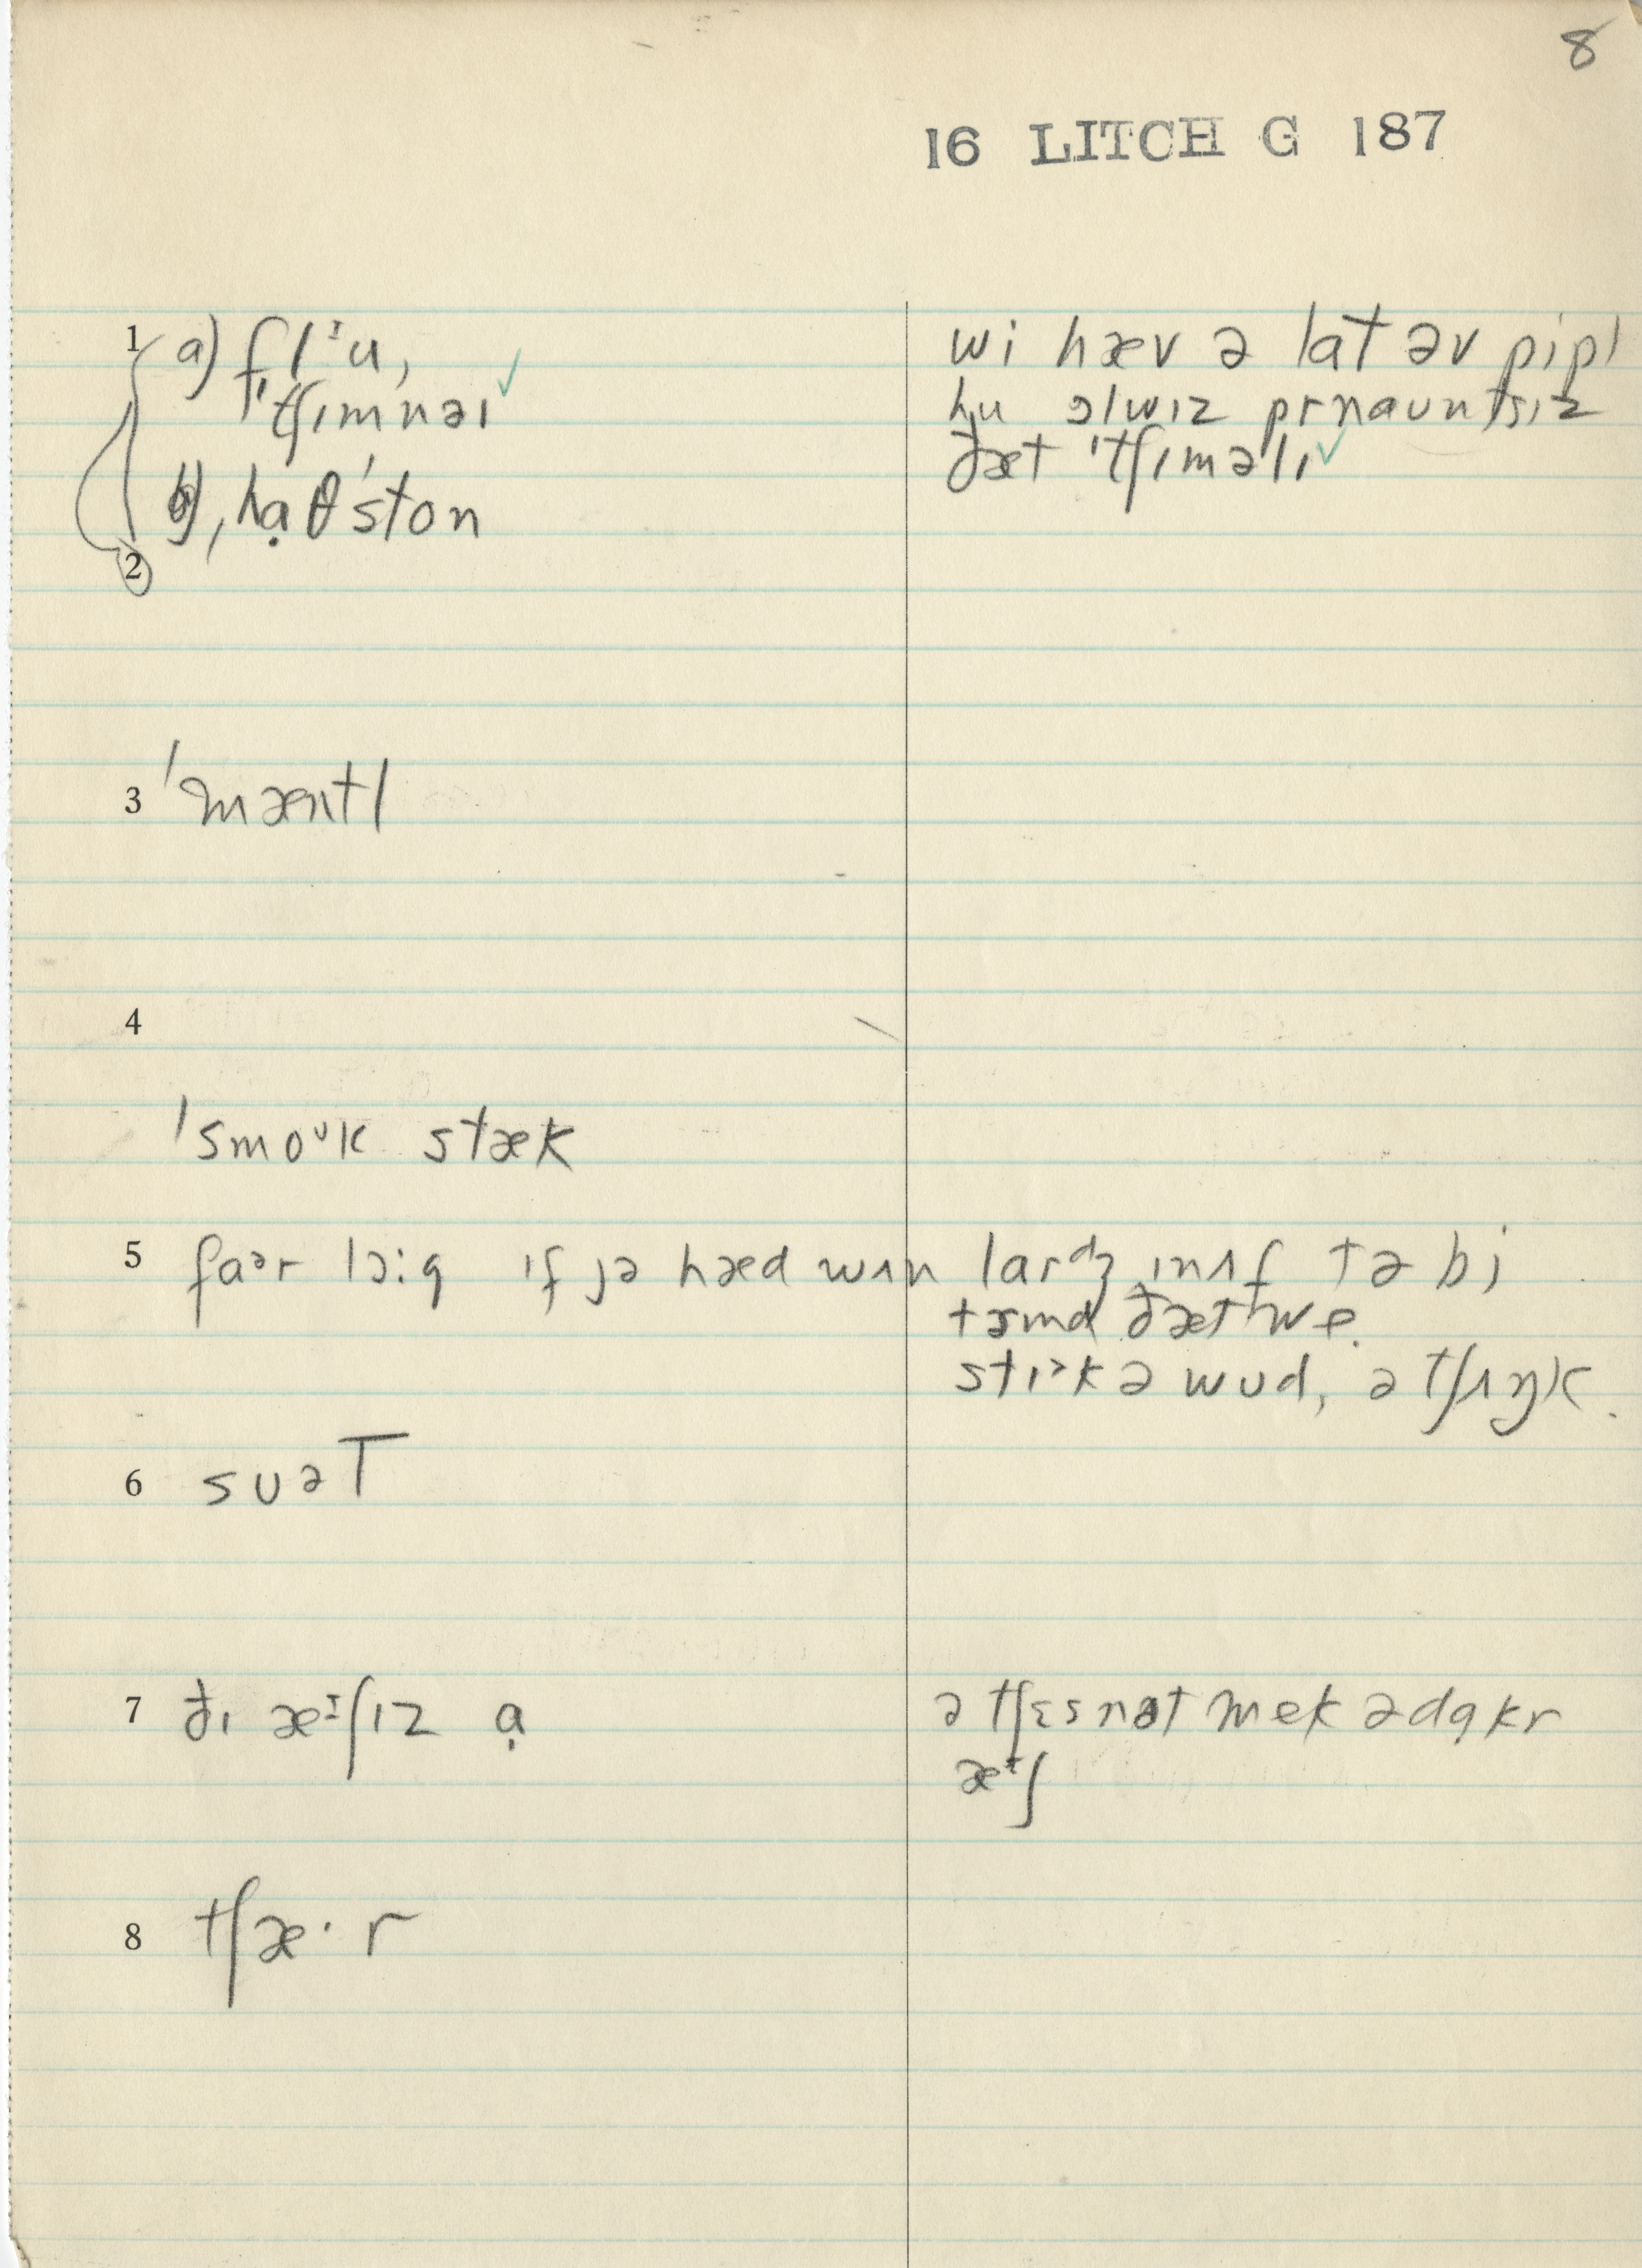 8
16 LITCH G 187
1 a) flᶦu,
ˈtʃɪmnəɪ ✓
b) ˌhạθˈston
2
wi hæv ə lat əv pipl
hu ɔlwɪz prnauntsɪz
ðæt ˈtʃɪməlɪ ✓
3 ˈmæntl
4
ˈsmoᶸk stæk
5 faᵊr lɔ:g ɪf jə hæd wʌn lardʒ ɪnʌf tə bi
tɜmd ðæt we
stɪᵊk ə wud, ə tʃʌŋk.
6 sʊəT
7 ðɪ æᶦʃɪz ạ
ə tʃɛsnət mek ə dạkr
æᶦʃ
8 tʃæ· r